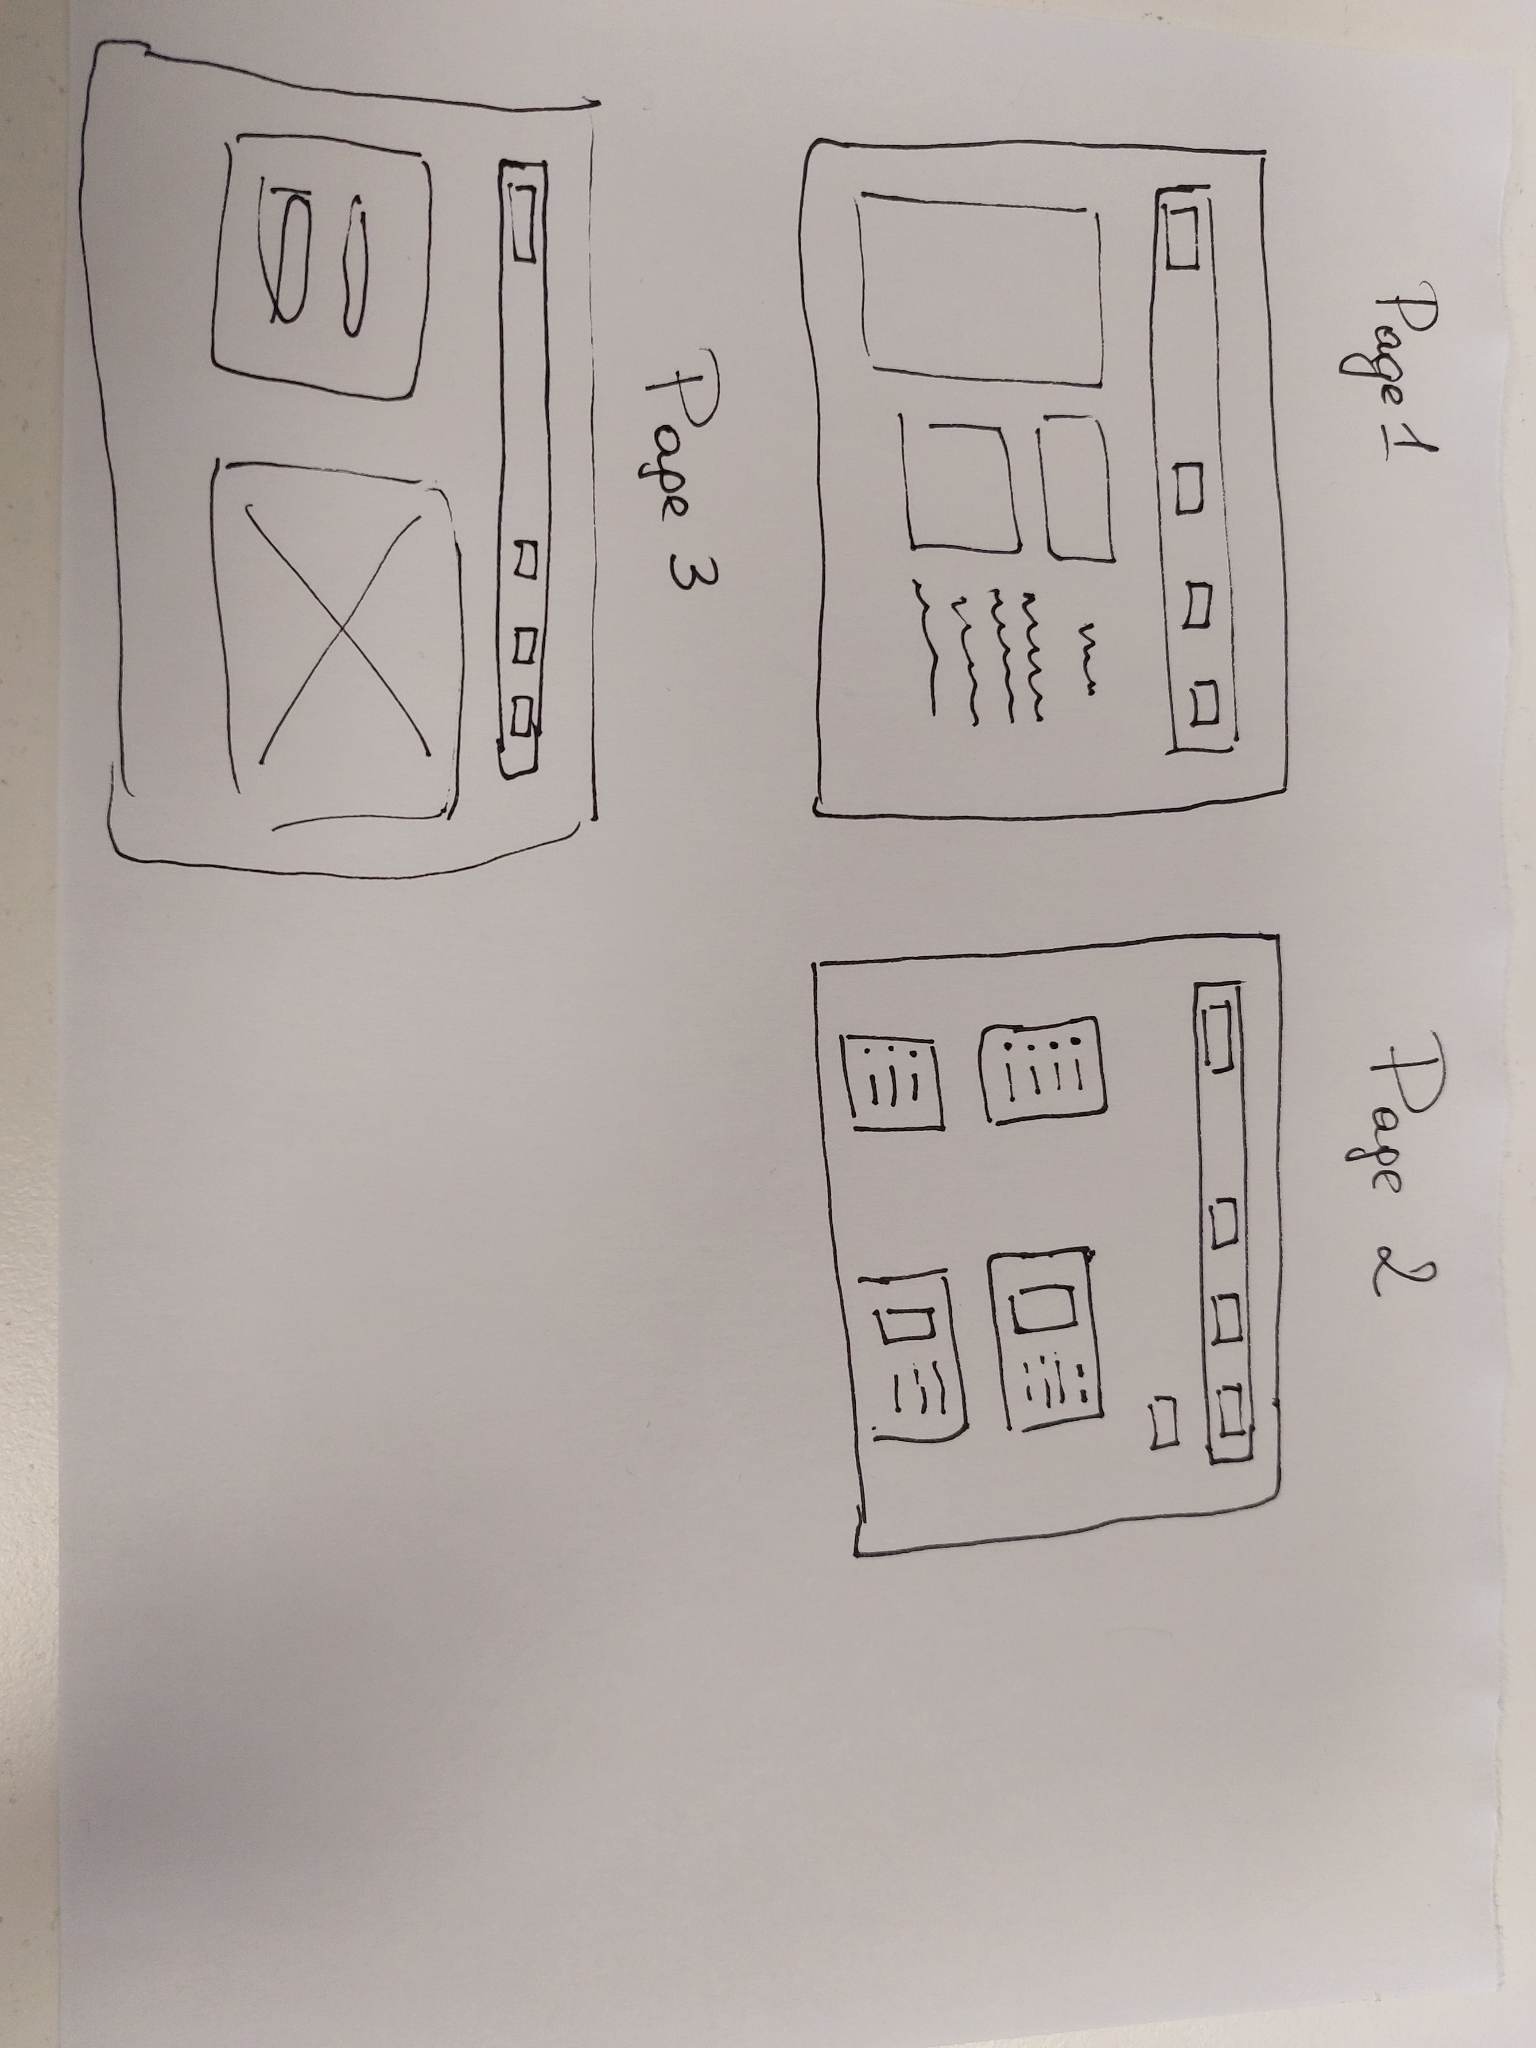 Page 1
Page 2
Page 3